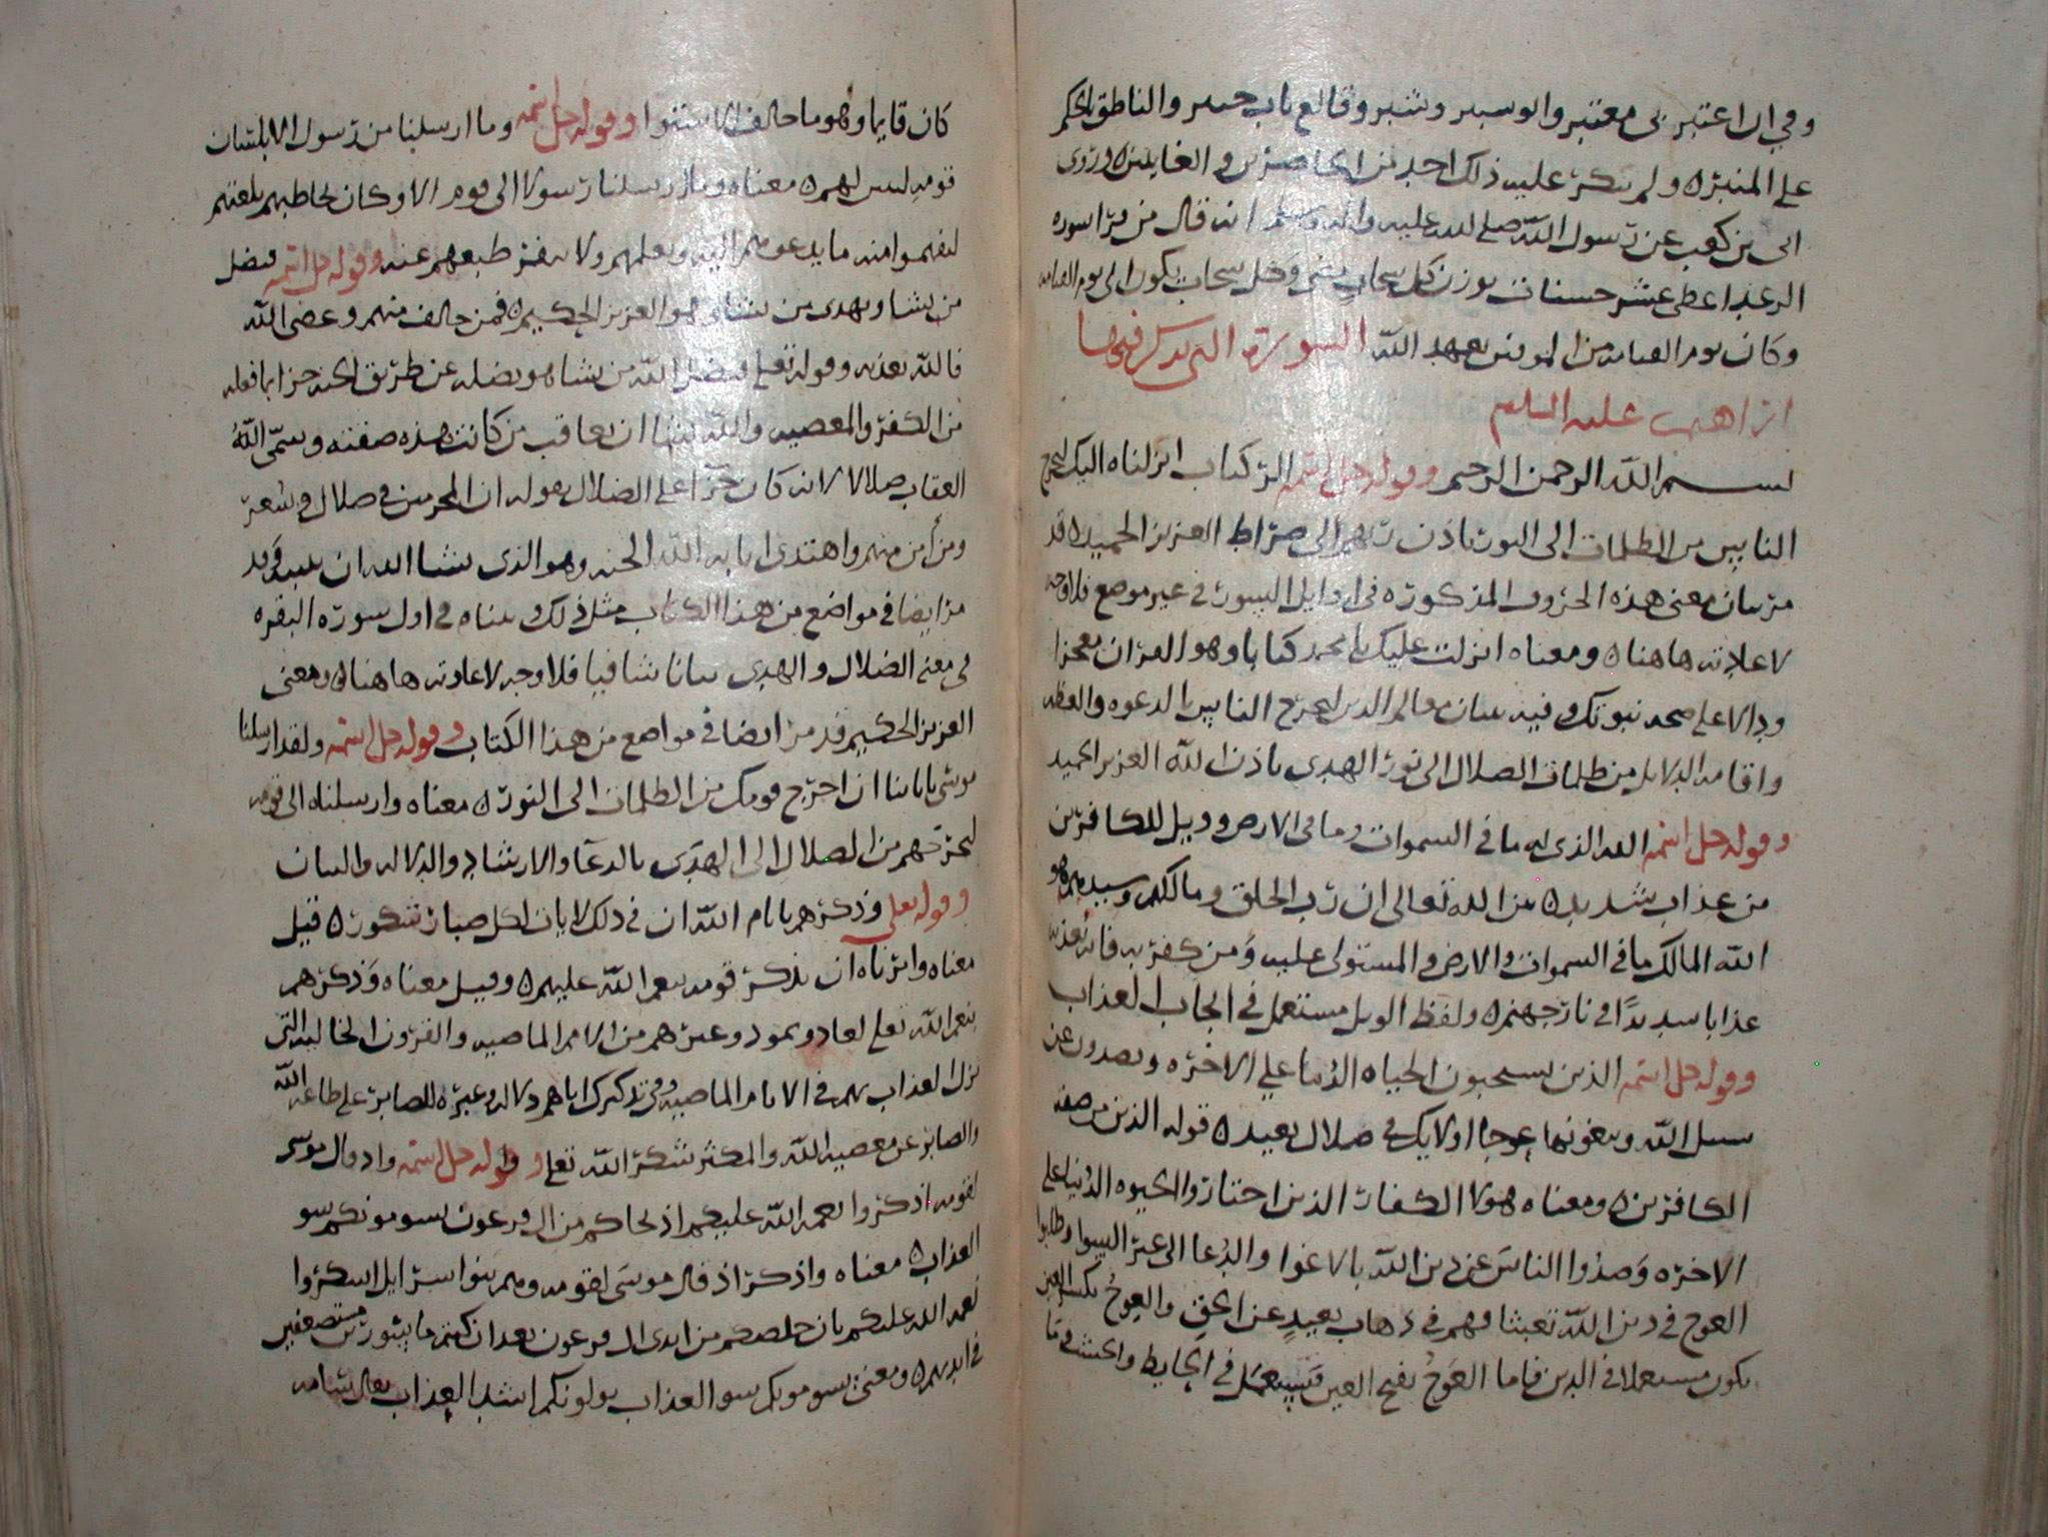 وفي ان اعتبر بي معتبر والوسبر وشبر وقالع باب حبر والناطق بالحكم
على المنبر ولم ينكر عليه ذلك احد من الحاضرين والغايبين وروى
ابى بن كعب عن رسول الله صلى الله عليه واله وسلم انه قال من قرا سوره
الرعد اعطى عشر حسنات بوزن كل سحاب مضى وكل سحاب يكون الى يوم القيامه
وكان يوم القيامه من الموفين بعهد الله السورة التي يذكر فيها
ابراهيم عليه السلم
بسم الله الرحمن الرحيم وقوله جل اسمه الر كتاب انزلناه اليك لتخرج
الناس من الظلمات الى النور باذن ربهم الى صراط العزيز الحميد قد
مر بيان معنى هذه الحروف المذكوره في اوايل السور في غير موضع فلا وجه
لاعادته هاهنا ومعناه انزلت عليك يا محمد كتابا وهو القران معجزا
ودالا على صحه نبوتك وفيه بيان معالم الدين لتخرج الناس بالدعوه والعظه
واقامه الدلايل من ظلمات الضلال الى نور الهدى باذن الله العزيز الحميد
وقوله جل اسمه الله الذى له ما في السموات وما في الارض وويل للكافرين
من عذاب شديد بين الله تعالى ان رب الخلق ومالكهم وسيدهم هو
الله المالك ما في السموات والارض والمستولى عليه ومن كفر به فانه يعذبه
عذابا شديدًا في نار جهنم ولفظ الويل مستعمل في ايجاب العذاب
وقوله جل اسمه الذين يستحبون الحياه الدنيا على الاخره ويصدون عن
سبيل الله ويبغونها عوجا اولايك في ضلال بعيد قوله الذين من صفه
الكافرين ومعناه هولا الكفار الذين اختاروا الحيوه الدنيا على
الاخره وصدوا الناس عن دين الله بالاغوا والدعا الى غير السوا وطلبوا
العوج في دين الله تعبثا فهم في ذهاب بعيد عن الحق والعوج بكسر العين
يكون مستعملا في الدين فاما العوج بفتح العين فيستعمل في الحايط والخشب وما
كان قايما وهو ما خالف الاستوا وقوله جل اسمه وما ارسلنا من رسول الا بلسان
قومه ليبين لهم معناه وما ارسلنا رسولا الى قوم الا وكان يخاطبهم بلغتهم
ليفهموا منه ما يدعوهم اليه ويعلمهم ولا ينفر طبعهم عنه وقوله جل اسمه فيضل
من يشا ويهدى من يشا وهو العزيز الحكيم فمن خالف منهم وعصى الله
فالله يعذبه وقوله تعلى فيضل الله من يشا هو يضله عن طريق الجنه جزا بما فعله
من الكفر والمعصيه والله يشا ان يعاقب من كانت هذه صفته وسمى الله
العقاب ضلالا لانه كان جزآ على الضلال بقوله ان المجرمين في ضلال وسعر
ومن أمن منهم واهتدى اثابه الله الجنه وهو الذى يشا الله ان يثيبه وقد
مر ايضا في مواضع من هذا الكتاب مثل ذلك وبيناه في اول سورة البقره
في معنى الضلال والهدى بيانا شافيا فلا وجه لاعادته هاهنا ومعنى
العزيز الحكيم قد مر ايضا في مواضع من هذا الكتاب وقوله جل اسمه ولقد ارسلنا
موسى باياتنا ان اخرج قومك من الظلمات الى النور معناه وارسلناه الى قومه
ليخرجهم من الضلال الى الهدى بالدعآ والارشاد والدلاله والبيان
وقوله تعلى وذكرهم بايام الله ان في ذلك لايات لكل صبار شكور قيل
معناه وامرناه ان يذكر قومه نعم الله عليهم وقيل معناه وذكرهم
بنعم الله تعلى لعاد وثمود وغيرهم من الامم الماضيه والقرون الخاليه التى
نزل العذاب بهم في الايام الماضيه وفي تذكيرك اياهم دلاله وعبره للصابر على طاعه الله
والصابر عن معصيه الله والمكثر شكر الله تعلى وقوله جل اسمه واذ قال موسى
لقومه اذكروا نعمه الله عليكم اذ نجاكم من ال فرعون يسومونكم سو
العذاب معناه واذكر اذ قال موسى لقومه وهم بنوا سرايل اشكروا
نعمه الله عليكم بان خلصكم من ايدى ال فرعون بعد ان كنتم ماسورين مستضعفين
في ايديهم ومعنى يسومونكم سو العذاب يولونكم اشد العذاب يقال سامه